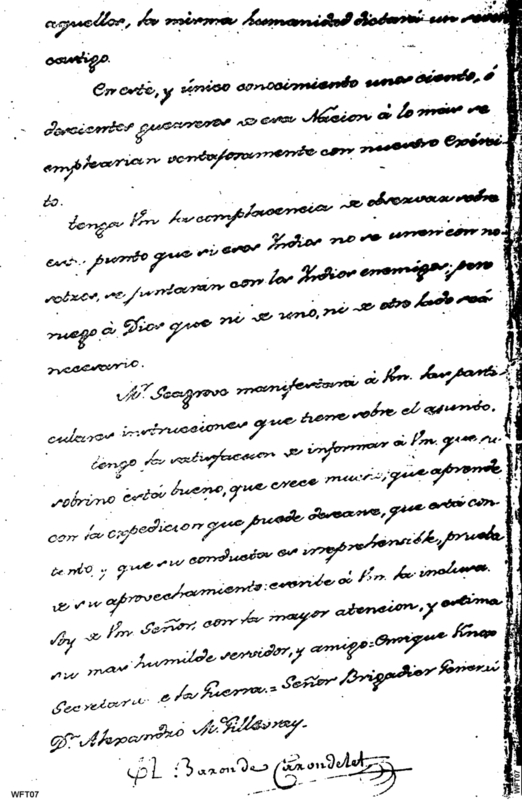 aquellos, la misma humanidad dictará un severo
castigo.
En este, y único conocimiento unos ciento, ó
doscientos guerreros de esa Nacion á lo mas se
emplearian ventajosamente con nuestro Exérci-
to.
tenga Vm. la complacencia de observar sobre
este punto que si esos Indios no se unen con no-
sotros, se juntarán con los Indios enemigos; pero
ruego á Dios que ni de uno, ni de otro lado seá
necesario.
Mr. Seagrove manifestará á Vm. las parti-
culares instrucciones que tiene sobre el asunto.
tengo la satisfaccion de informar á Vm. que su
sobrino está bueno, que crece mucho, que aprende
con la expedicion que puede desearse, que está con-
tento, y que su conducta es irreprehensible, prueba
de su aprovechamiento: escribe á Vm. la inclusa.
Soy de Vm. Señor, con la mayor atencion, y estima
su mas humilde servidor, y amigo = Enrique Knox
Secretario de la Guerra. = Señor Brigadier General
Dn. Alexandro Mc.Gillevrey.
El Baron de Carondelet
WFT07
WFT07